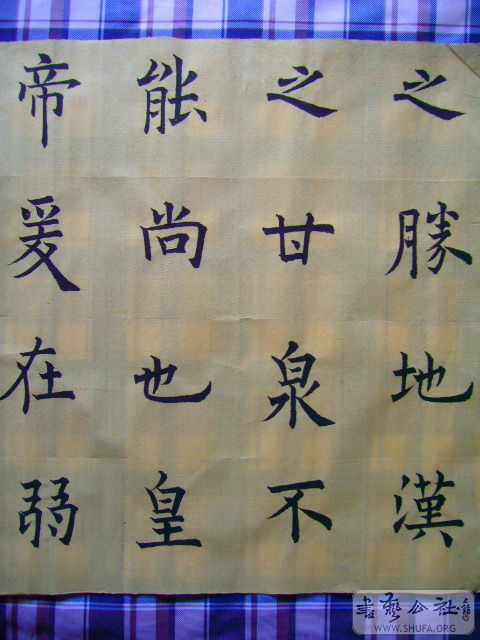 之勝地漢
之甘泉不
能尚也皇
帝爰在弱
書藝公社
WWW.SHUFA.ORG